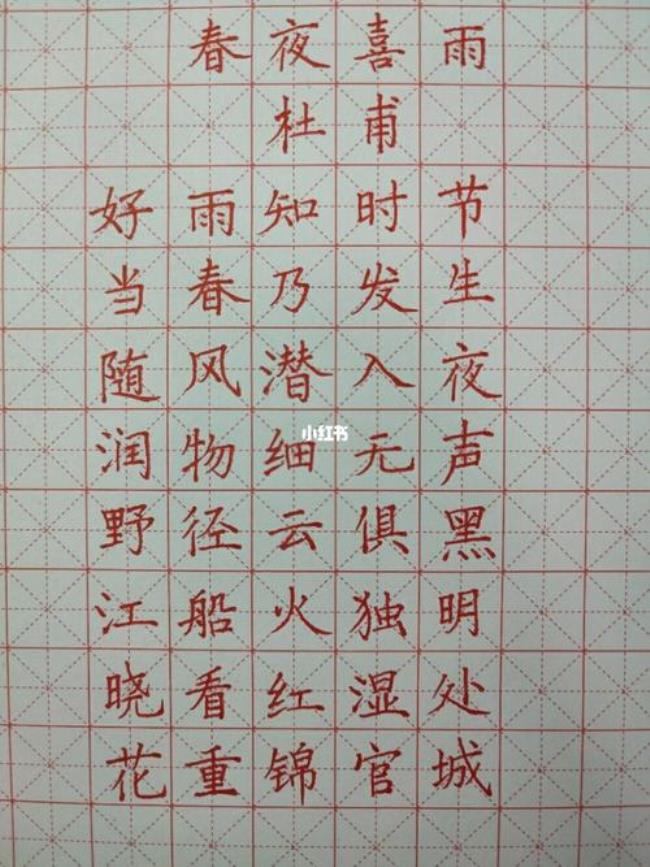 春夜喜雨
杜甫
好雨知时节
当春乃发生
随风潜入夜
润物细无声
野径云俱黑
江船火独明
晓看红湿处
花重锦官城
小红书